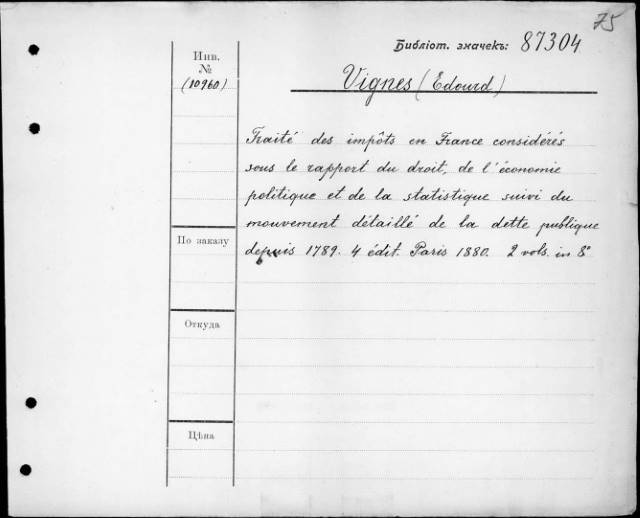 75
Библіот. значекъ: 87304
Инв.
№
(10960)
Vignes (Edourd)
Traité des impôts en France considérés
sous le rapport du droit, de l'économie
politique et de la statistique suivi du
mouvement détaillé de la dette publique
depuis 1789. 4 édit. Paris 1880. 2 vols. in 8°
По заказу
Откуда
Цѣна